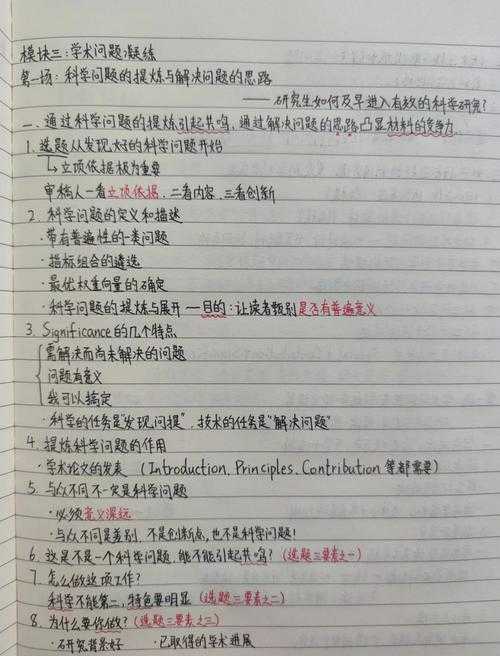 模块三:学术问题凝练
第一场:科学问题的提炼与解决问题的思路
——研究生如何及早进入有效的科学研究?
一、通过科学问题的提炼引起共鸣,通过解决问题的思路凸显材料的竞争力.
1. 选题从发现好的科学问题开始
↳立项依据极为重要
审稿人一看立项依据.二看内容.三看创新
2. 科学问题的定义和描述
·带有普遍性的一类问题
·指标组合的遴选
·最优权重向量的确定
·科学问题的提炼与展开 —目的:让读者甄别是否有普遍意义
3. Significance的几个特点
需解决而尚未解决的问题
问题有意义
我可以搞定
·科学的任务是"发现问提".技术的任务是"解决问题"
4. 提炼科学问题的作用
·学术论文的发表 (Introduction. Principles. Contribution 等都需要)
5. 与众不同不一定是科学问题
·必须意义深远
·与众不同是差别.不是创新点,也不是科学问题!
6. 这是不是一个科学问题.能不能引起共鸣?(选题三要素之一)
7. 怎么做这项工作?
科学不能第二,特色要明显(选题三要素之二)
8. 为什么要你做?(选题三要素之三)
·研究背景好 ·已取得的学术进展